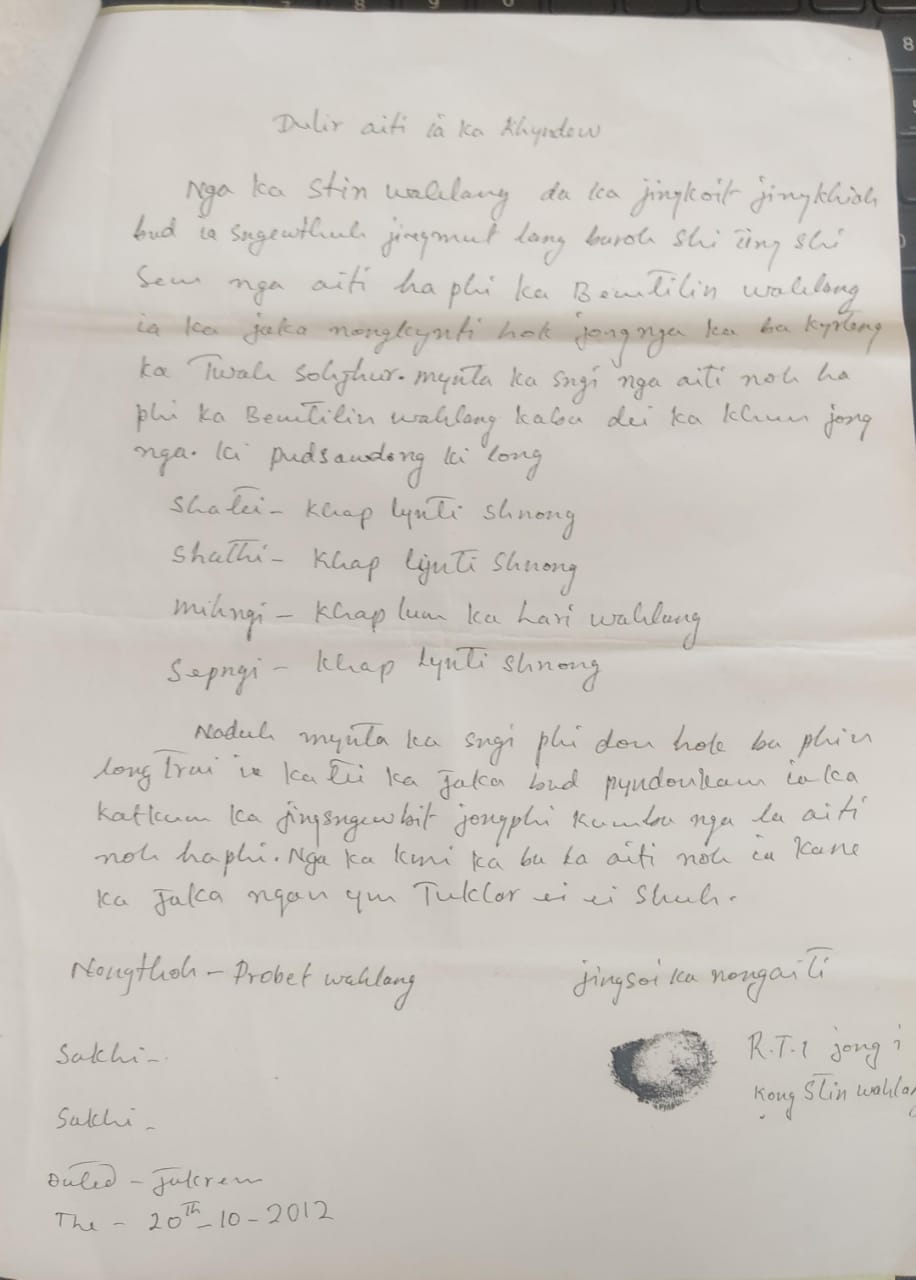 Dulir aiti ia ka Khyndew
Nga ka Stin wahlang da ka jingkoit jingkhiah
bud ia sngewthuh jingmut lang baroh shi iing shi
Sem nga aiti ha phi ka Bemtilin wahlang
ia ka jaka nongkynti hok jongnga ka ba kyrteng
ka Twah Sohjhur. mynta ka sngi nga aiti noh ha
phi ka Bemtilin wahlang kaba dei ka khun jong
nga. ki pudsawdong ki long
Shatei - Khap lynti shnong
Shathi - Khap lynti Shnong
mihngi - Khap lum ka hari wahlang
Sepngi - Khap lynti Shnong
Naduh mynta ka sngi phi don hok ba phin
long Trai ia ka tei ka Jaka bud pyndonkam ia ka
katkum ka jingsngewbit jongphi kumba nga la aiti
noh haphi. Nga ka kmi ka ba la aiti noh ia kane
ka Jaka ngan ym Tuklar ei ei Shuh.
Nongthoh - Probet wahlang
jingsoi ka nongaiti
R.T.I jong i
Kong Stin wahlang
Sakhi -
Sakhi -
Dated - Jakrem
The - 20Th - 10 - 2012